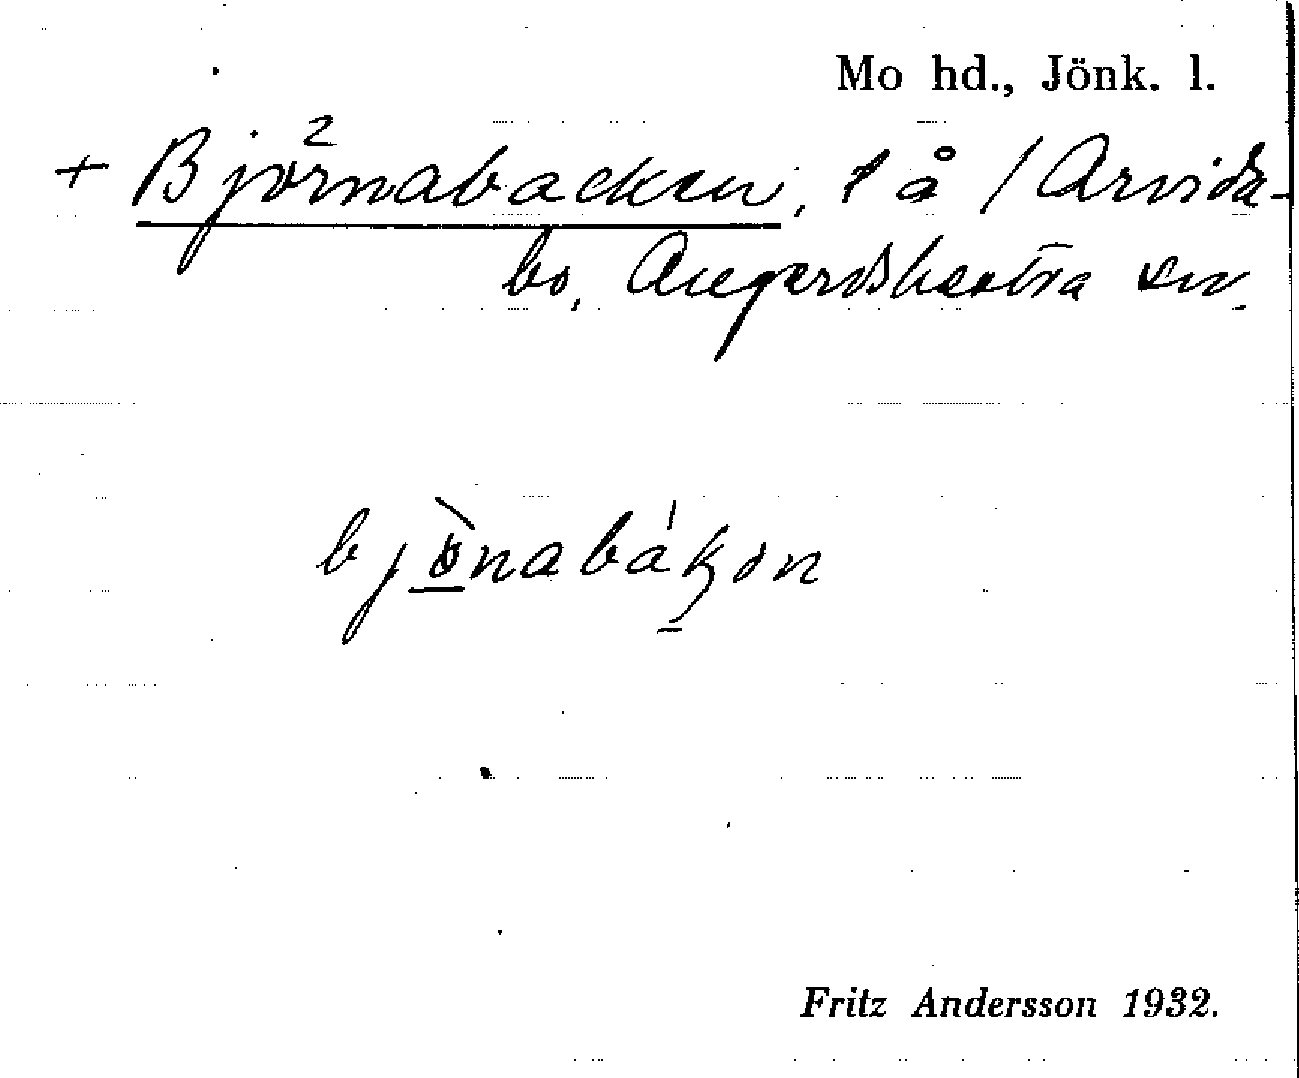 Mo hd., Jönk. l.
+ Björnabacken, l å / Arvida-
bo, Angerdshestra sn.
bjönabákon
Fritz Andersson 1932.